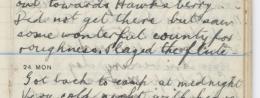 out towards Hawksberry.
Did not get there but saw
some wonderful country for
roughness. Played the flute
24 MON
Got back to camp at midnight
Very cold night with heavy